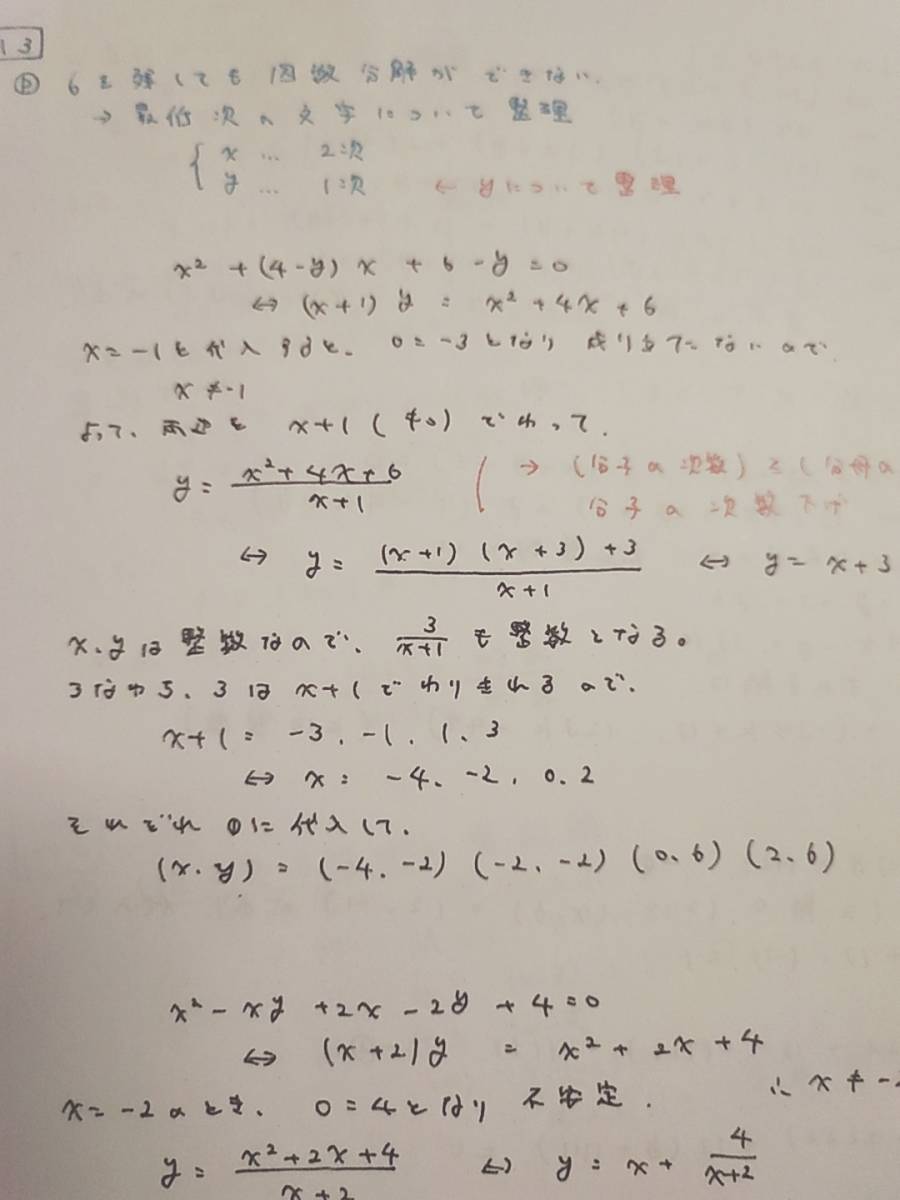 13
Ⓟ 6を残しても因数分解ができない.
→ 最低次の文字について整理
{ x … 2次
y … 1次 ← yについて整理
x² + (4-y) x + 6 - y = 0
⇔ (x+1) y = x² + 4x + 6
x = -1を代入すると、0 = -3となり 成り立たないので、
x ≠ -1
よって、両辺を x+1 (≠0) でわって、
y = (x² + 4x + 6)/(x+1) → (分子の次数) ≧ (分母の
分子の次数下げ
⇔ y = ((x+1)(x+3)+3)/(x+1) ⇔ y = x + 3
x、yは整数なので、3/(x+1) も整数となる。
すなわち、3は x+1でわりきれるので、
x+1 = -3、-1、1、3
⇔ x = -4、-2、0、2
それぞれ①に代入して、
(x、y) = (-4、-2) (-2、-2) (0、6) (2、6)
x² - xy + 2x - 2y + 4 = 0
⇔ (x+2)y = x² + 2x + 4
x = -2のとき、0 = 4となり 不安定. ∴ x ≠ -
y = (x² + 2x + 4)/(x+2) ⇔ y = x + 4/(x+2)